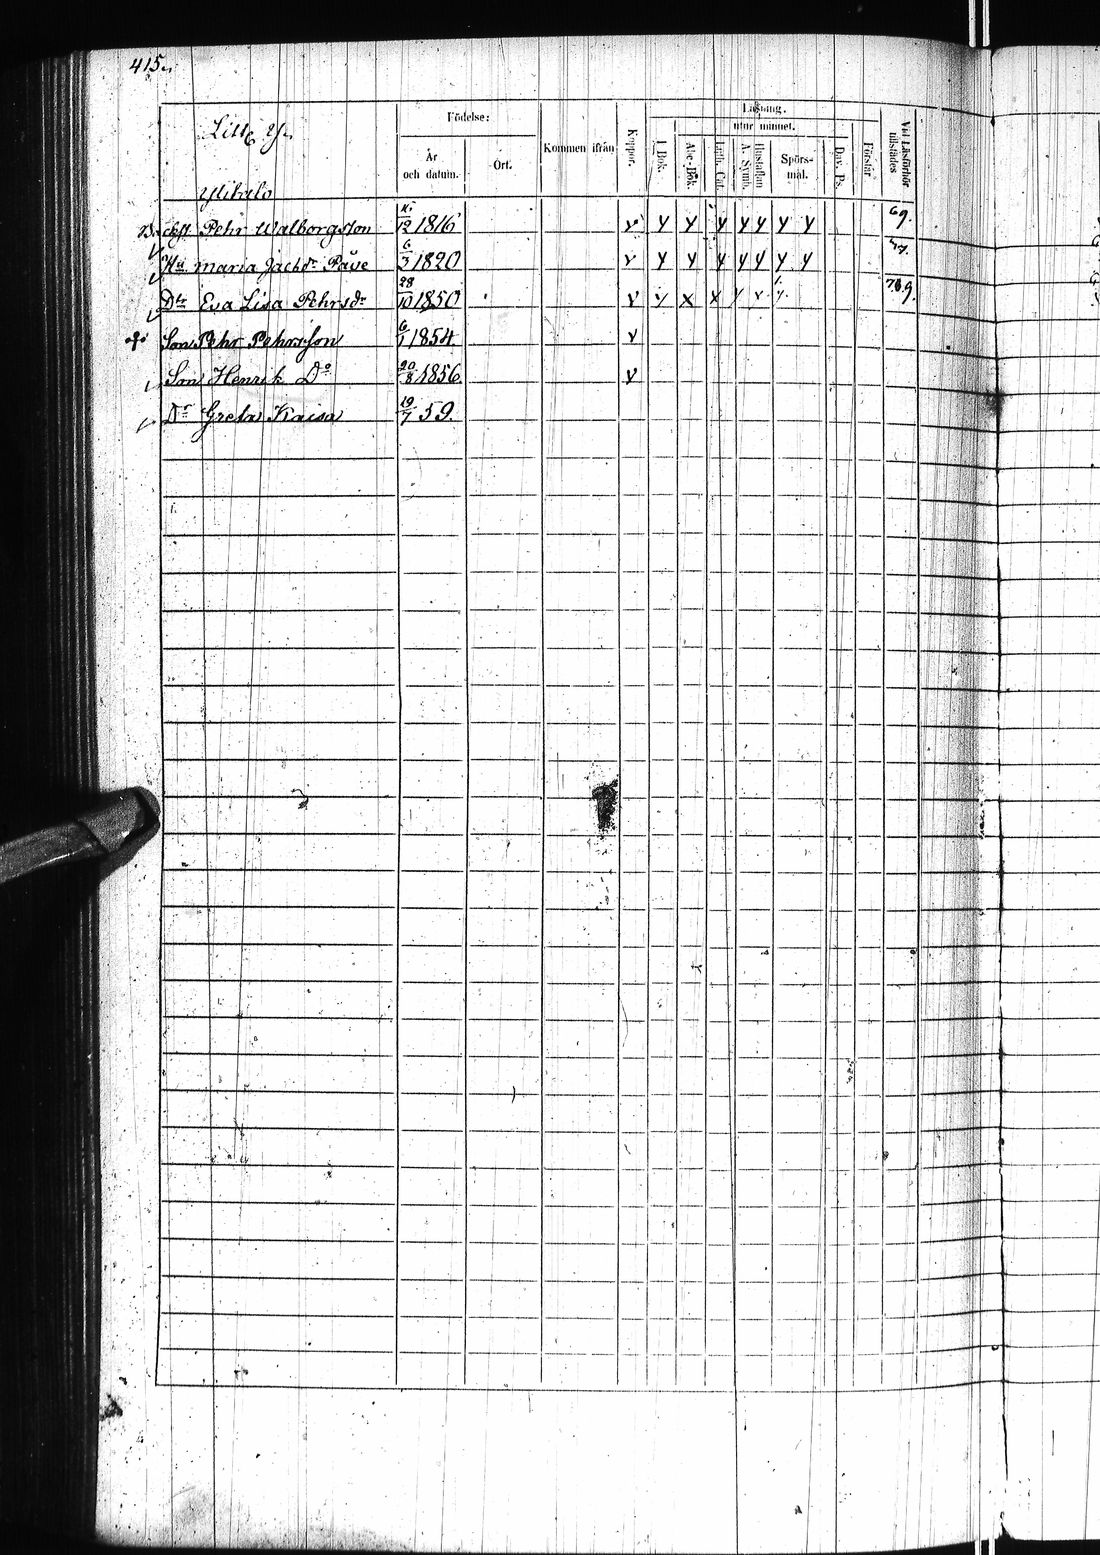 415.
Litt. Y.
Ylikalo
Födelse:
År och datum.
Ort.
Kommen ifrån
Koppor.
Läsning.
utur minnet.
I Bok.
Abc-Bok.
Luth. Cat.
A. Symb.
Hustaflan
Spörsmål.
Dav. Ps.
Förstår
Vid Läsförhör tillstädes
Pehr Walborgsson 12 1816 v y y y y y y y 69.
Hu Maria Jachdr Påve 6/3 1820 v y y y y y y y
Dtr Eva Lisa Pehrsdr 28/10 1850 v y x x y v y 7.8.9.
Son Pehr Pehrsson 6/1 1854 v
Son Henrik Do 20/8 1856. v
Dr Greta Kaisa 19/7 59.